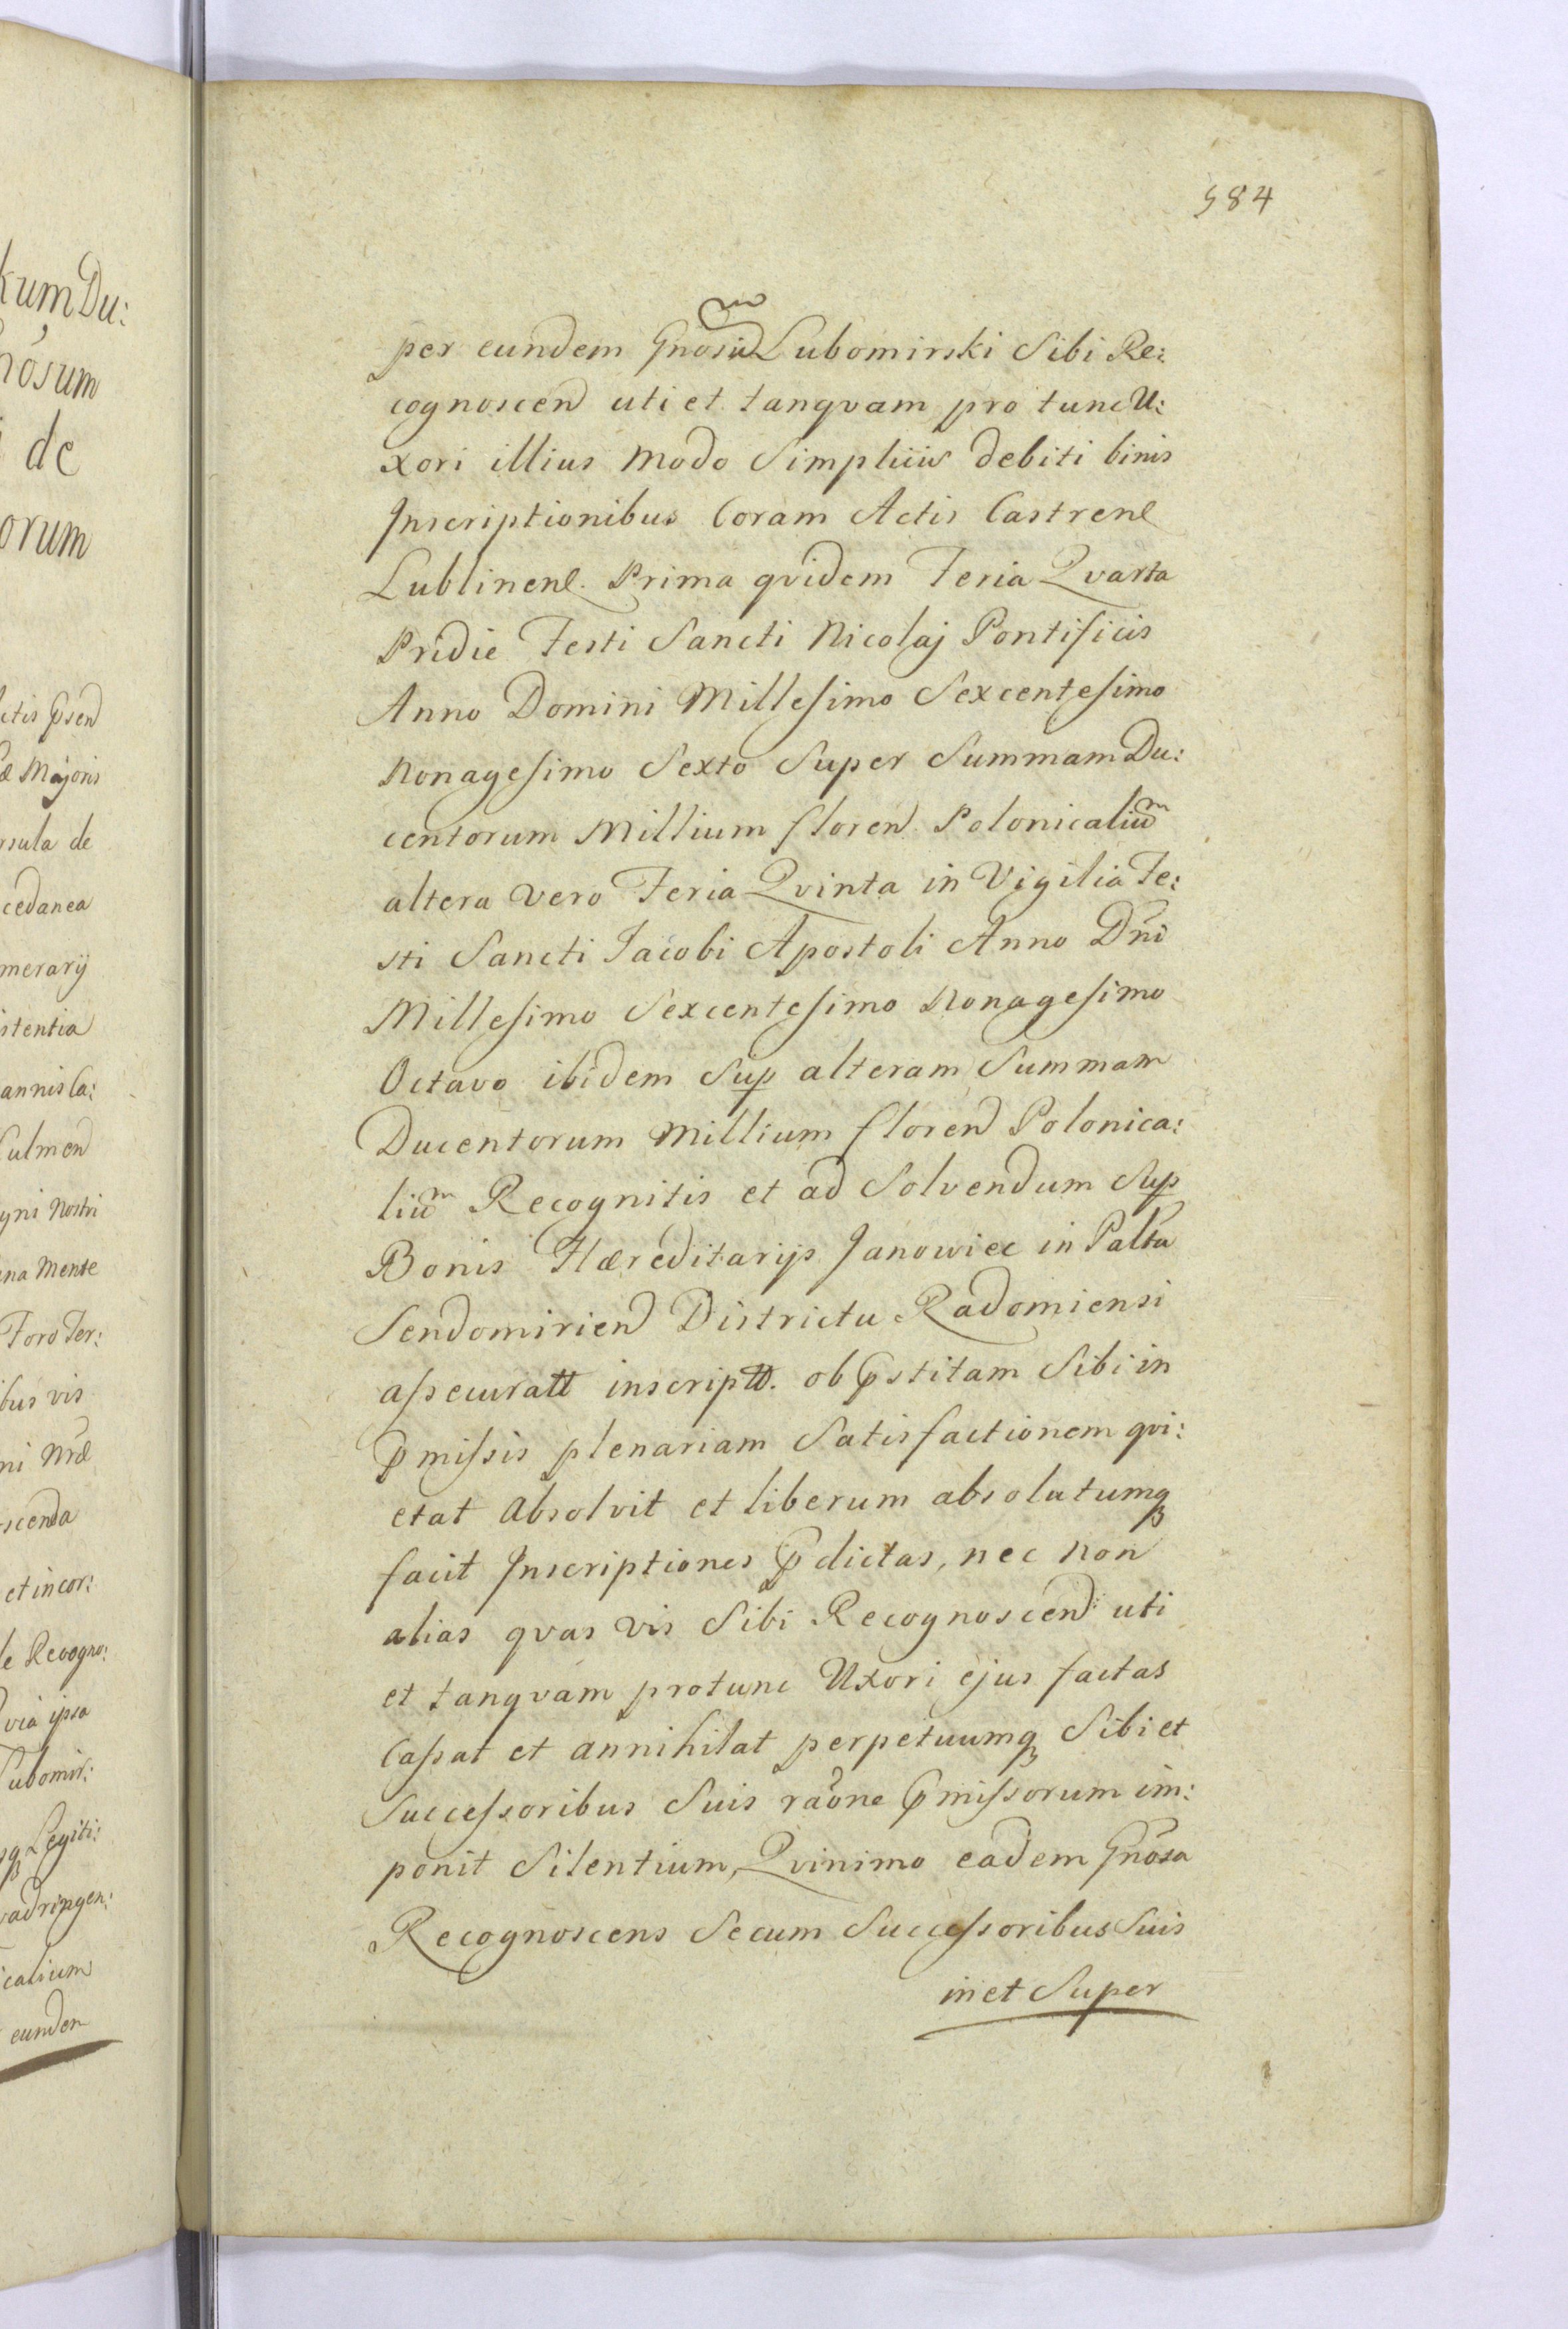 584
per eundem Gnosum Lubomirski Sibi Re:
cognoscen uti et tanqvam pro tunc U:
xori illius modo Simplicis debiti binis
Inscriptionibus Coram Actis Castren
Lublinen. Prima qvidem Feria Qvarta
Pridie Festi Sancti Nicolaj Pontificis
Anno Domini Millesimo Sexcentesimo
Nonagesimo Sexto Super Summam Du:
centorum Millium floren Polonicalium
altera vero Feria Qvinta in Vigilia Fe:
sti Sancti Jacobi Apostoli Anno Dni
Millesimo Sexcentesimo Nonagesimo
Octavo ibidem Sup alteram Summam
Ducentorum Millium floren Polonica:
lium Recognitis et ad Solvendum Sup
Bonis Hæreditarijs Janowiec in Paltu
Sendomirien Districtu Radomiensi
assecuratt inscriptt. ob pstitam Sibi in
pmissis plenariam Satisfactionem qvi:
etat absolvit et liberum absolutumq
facit Inscriptiones pdictas, nec non
alias qvas vis Sibi Recognoscen uti
et tanqvam protunc Uxori ejus factas
Cassat et annihilat perpetuumq Sibi et
Successoribus Suis raone pmissorum im:
ponit Silentium, Qvinimo eadem Gnosa
Recognoscens Secum Successoribus Suis
in et Super
kum Du:
nosum
de
orum
ctis psen
æ Majoris
rsula de
cedanea
merarij
istentia
annis Ca:
Culmen
gni Nostri
ana Mente
Foro Ter:
ibus vis
ni Nræ
scenda
et incor:
le Recogno:
via ipsa
Lubomir:
q Legiti:
vadringen:
icalium
eundem